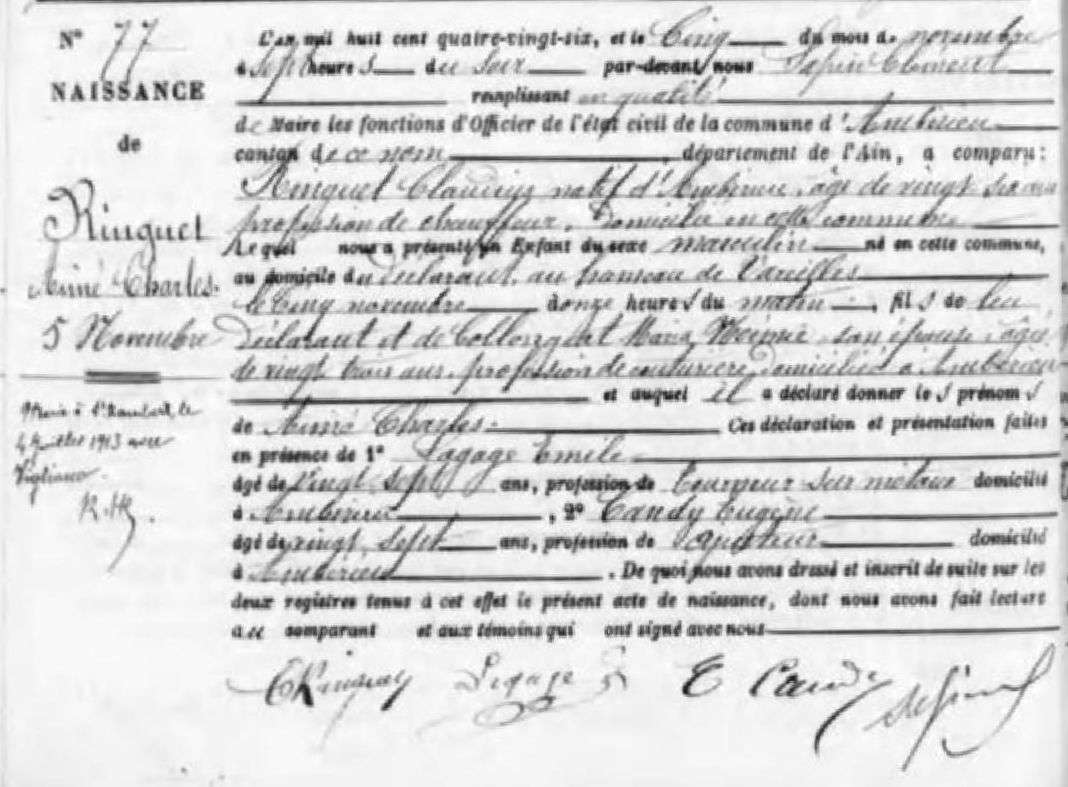 N° 77
NAISSANCE
de
Ringuet
Aimé Charles.
5 Novembre
L'an mil huit cent quatre-vingt-six, et le Cinq du mois de novembre
à Sept heures du Soir par-devant nous Clément
remplissant en qualité
de Maire les fonctions d'Officier de l'état civil de la commune d'Ambérieu
canton de ce nom, département de l'Ain, a comparu:
Ringuet Claudius natif d'Ambérieu, âgé de vingt six ans
profession de chauffeur, domicilié en cette commune
Lequel nous a présenté un Enfant du sexe masculin né en cette commune,
au domicile du déclarant, au hameau de Vareilles
le Cinq novembre à onze heures du matin, fils de lui
Déclarant et de Marie Noémie son épouse, âgée
de vingt trois ans, profession de couturière, domiciliés à Ambérieu
et auquel il a déclaré donner les prénoms
de Aimé Charles. Ces déclaration et présentation faites
en présence de 1° Lagage Emile
âgé de Vingt Sept ans, profession de tourneur sur métaux domicilié
à Ambérieu, 2° Candy Eugène
âgé de vingt Sept ans, profession de domicilié
à Ambérieu. De quoi nous avons dressé et inscrit de suite sur les
deux registres tenus à cet effet le présent acte de naissance, dont nous avons fait lecture
au comparant et aux témoins qui ont signé avec nous
Marié à le
Juillet 1913 avec
Vigliano.
Lagage
E Candy